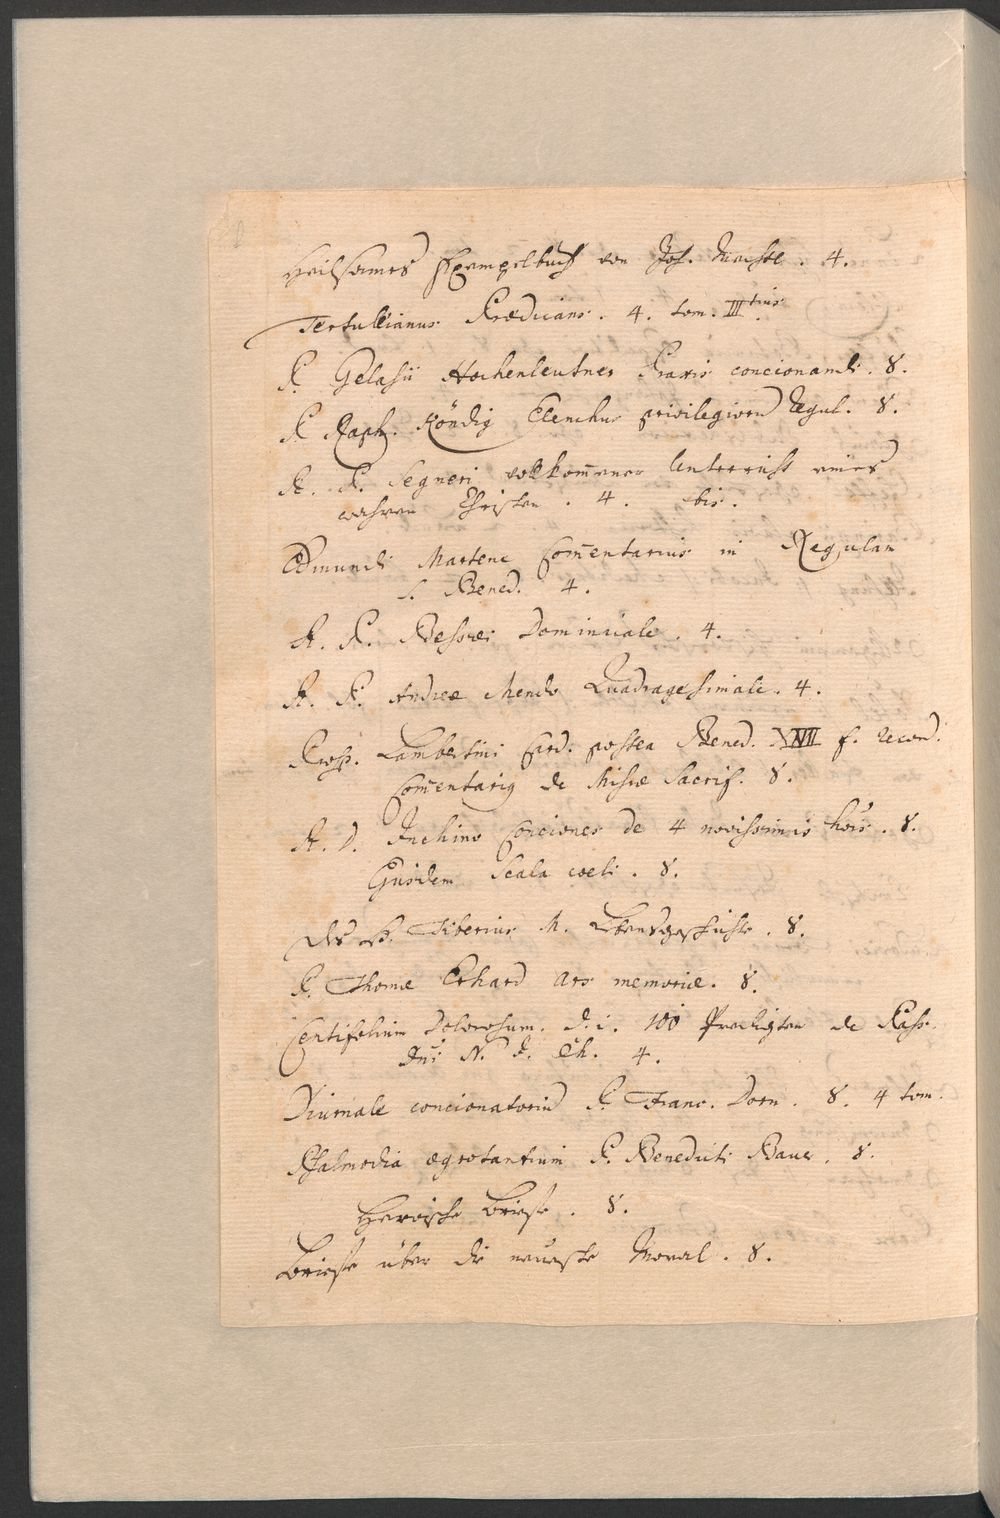 Heilsames Exempelbuch von Joh. 4.
Tertullianus Prædicans. 4. tom. III.tius
P. Gelasii Hochenleutner Praxis concionandi. 8.
P. Raph. Köndig Elenchus privilegiorū Regul. 8.
R. P. Segneri vollkom̄ener Unterricht eines
wahren Christen. 4. bis.
Edmundi Martene Com̄entarius in Regulam
S. Bened. 4.
R. P. Bessæi Dominicale. 4.
R. P. Andreæ Mendo Quadragesimale. 4.
Prosp. Lambertini Card. postea Bened. f. record.
Com̄entarig de Missæ Sacrif. 8.
R. D. Inchino Conciones de 4 novissimis hōis. 8.
Ejusdem Scala coeli. 8.
Des Hl. Tiberius M. Lebensgeschichte. 8.
P. Thomæ Erhard Ars memoriæ. 8.
Centifolium Dolorosum. d. i. 100 Predigten de Pass.
Dn̄i N. J. Ch. 4.
Diurnale concionatoriū P. Franc. Dorn. 8. 4 tom.
Psalmodia ægrotantium P. Benedicti Bauer. 8.
Heroische Briefe. 8.
Briefe über die neueste Moral. 8.